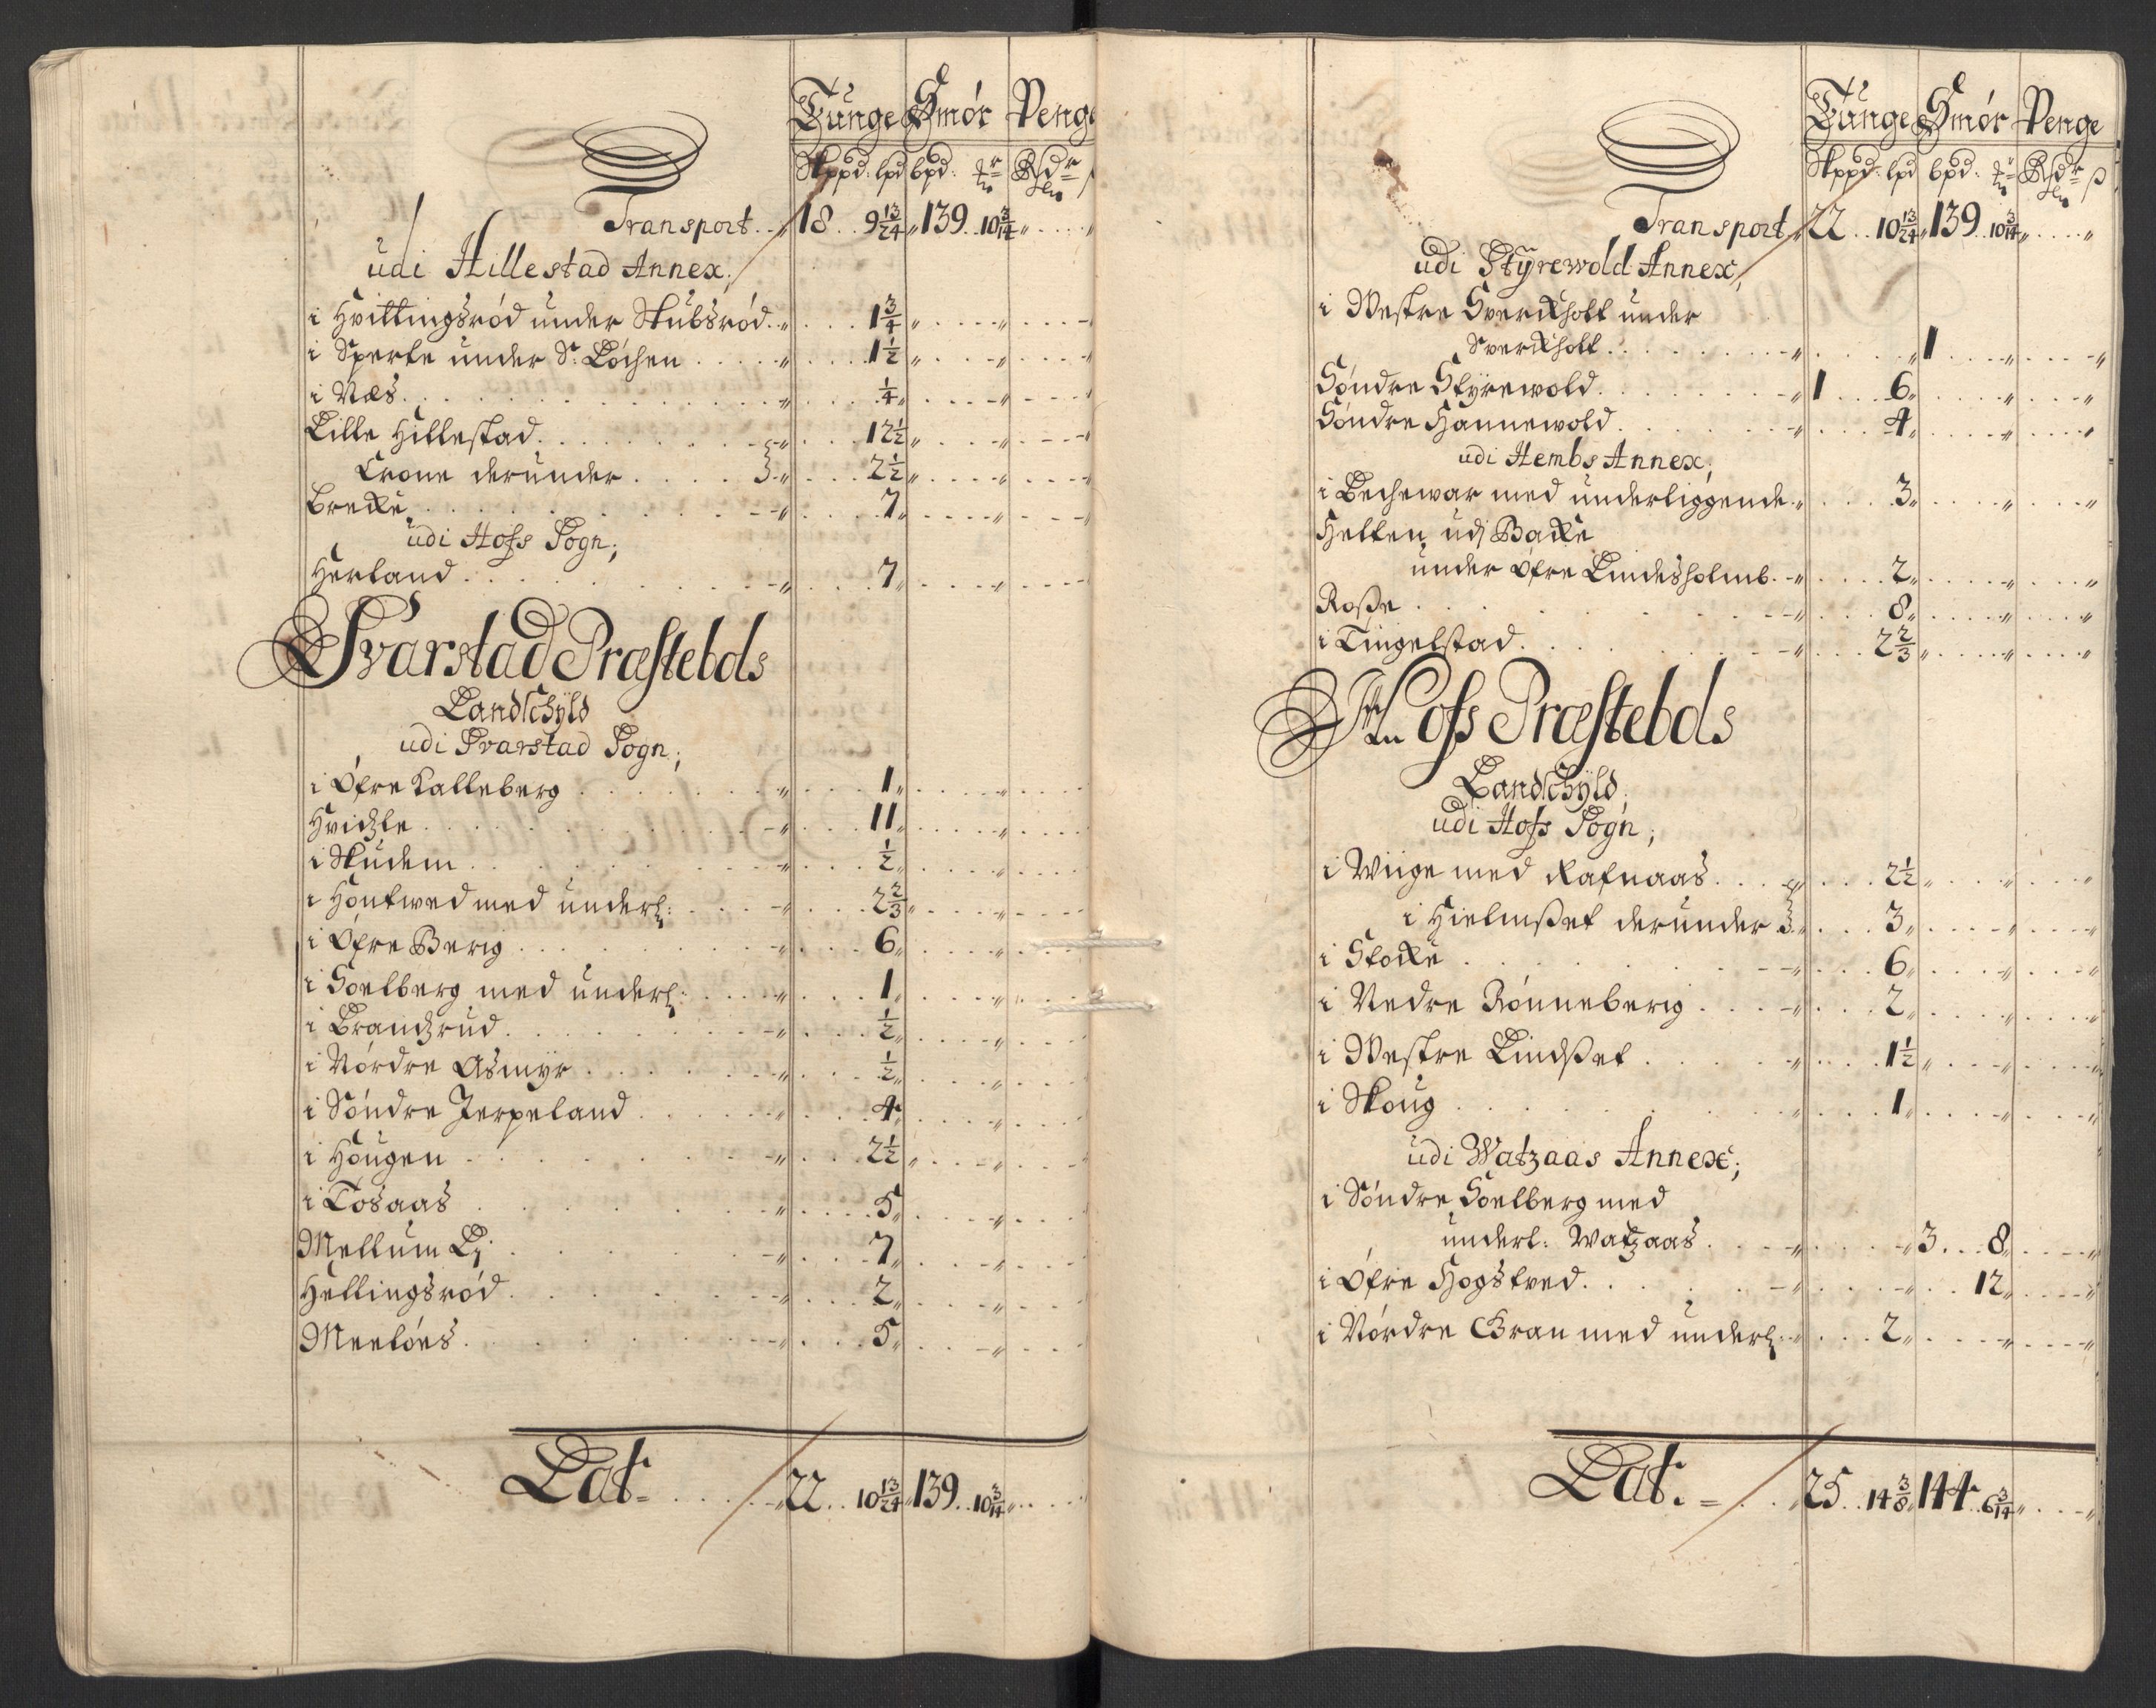 Tunge Smór Penge
Skppd: lpd bpd: Rdr
Transport. 18 .. 9 13/24 139 .. 10 3/14
udi Hillestad Annex;
i Hvittingsród under Skubsród. 1 3/4
i Sperte under St: Lóchen 1 1/2
i Næs. 1/4
Lille Hillestad. 12 1/2
Crone derunder 2 1/2
Brecke 7
udi Hofs Sogn;
Herland. 7
Svarstad Præstebols
Landschyld
udi Svarstad Sogn;
i Ófre Kalleberg 1
Hvidzle 11
i Skudem 1/2
i Hóntwed med underl: 2 2/3
i Ófre Berig 6
i Soelberg med underl: 1
i Brandzrud. 1/2
i Nórdre Asmyr 1/2
i Sóndre Jerpeland 4
i Hougen 2 1/2
i Tosaas 5
Mellum Li 7
Hellingsród 2
Meelóes. 5
Lat. 22 .. 10 13/24 139 .. 10 3/14
Tunge Smór Penge
Skppd: lpd bpd: Rdr ß
Transport 22 .. 10 13/24 139 .. 10 3/14
udi Styrewold Annex;
i Westre Sverckholt under
Sverckholt. 1
Sóndre Styrewold. 1 6
Sóndre Hannewold. 4
udi Hembs Annex;
i Bechewar med underliggende 3
Helten udj Backe
under ófre Lindesholmb. 2
Roße 8
i Tingelstad. 2 2/3
Hofs Præstebols
Landschyld;
udi Hofs Sogn;
i Wiige med Rafnaas. 2 1/2
i Hielmßet derunder 3
i Stocke 6
i Nedre Rónneberig 2
i Westre Lindßet 1 1/2
i Skoug 1
udi Watzaas Annex;
i Sóndre Soelberg med
underl: Watzaas. 3 .. 8
i Ófre Hogstved. 12
i Nórdre Gran med underl: 2
Lat. 25 .. 14 3/8 144 .. 6 3/14